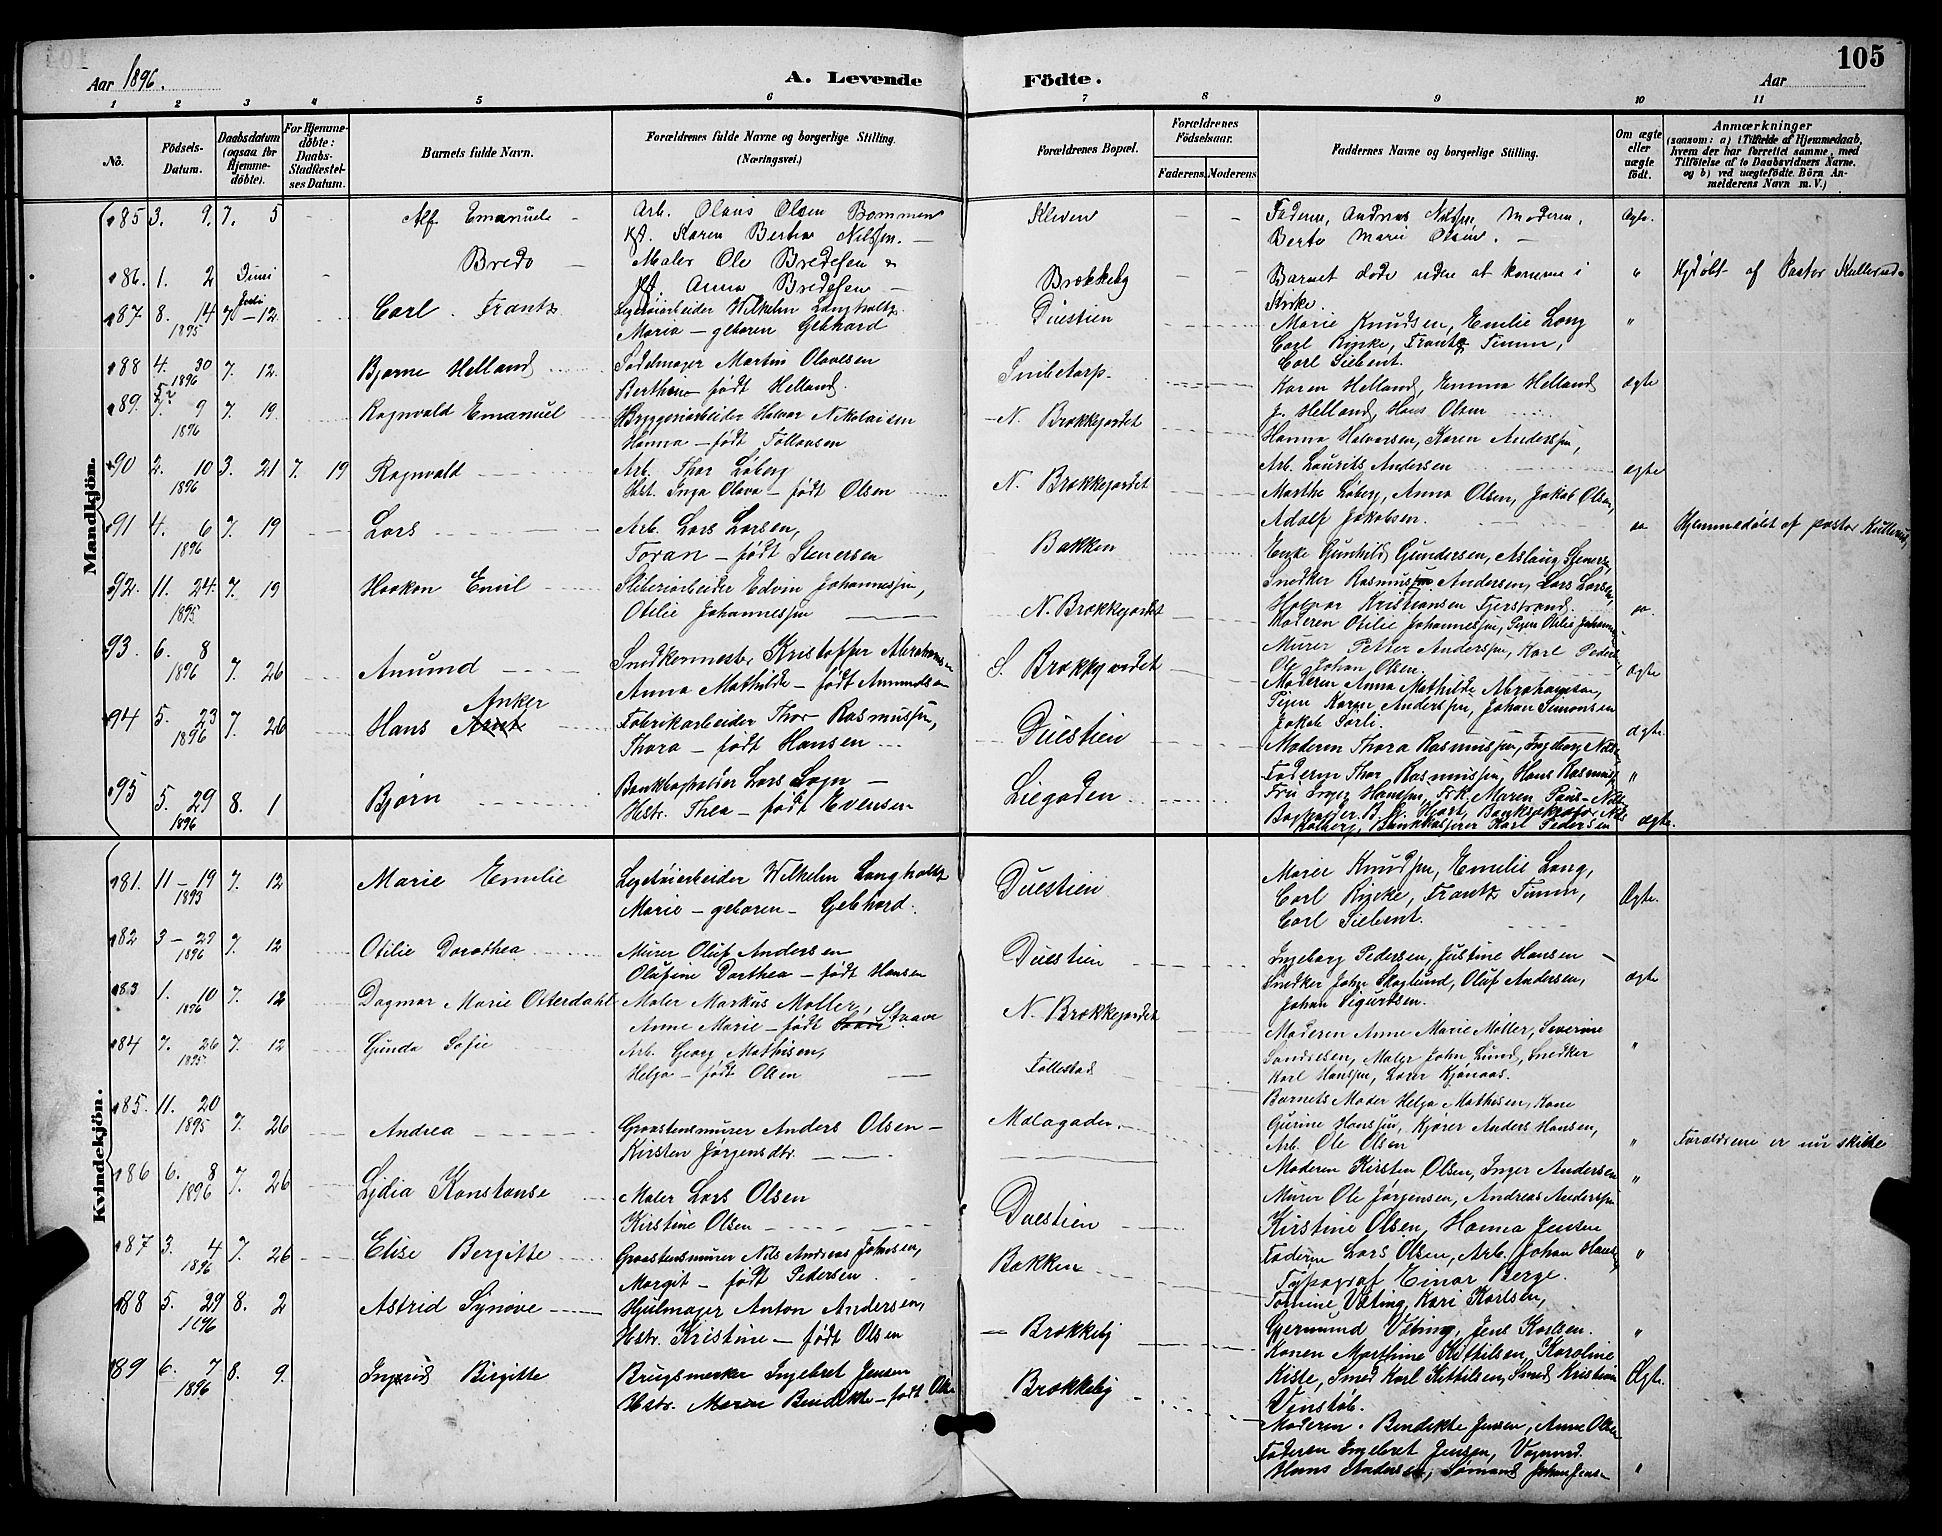 105
Aar 1896.
A. Levende Födte.
Aar
1 2 3 4 5 6 7 8 9 10 11
No.
Födsels-Datum.
Daabsdatum (ogsaa for Hjemmedöbte).
For Hjemmedöbte: Daabs-Stadfæstelses Datum.
Barnets fulde Navn.
Forældrenes fulde Navne og borgerlige Stilling. (Næringsvei.)
Forældrenes Bopæl.
Forældrenes Födselsaar.
Faderens. Moderens
Faddernes Navne og borgerlige Stilling.
Om ægte eller uægte födt.
Anmærkninger
(saasom: a) i Tilfælde af Hjemmedaab, hvem der har forrettet samme, med Tilföielse af to Daabsvidners Navne. og b) ved uægtefödte Börn Anmelderens Navn m. V.)
Mandkjön.
85 3. 9. 7. 5 Alf Emanuel Arb. Olaus Olsen Bommen Kleven Faderen, Andreas Nilssen, Moderen, Ægte.
Karen Bertea Nilsen. Berte Marie Olsen.
86. 1. 2 Juni Bredo Maler Ole Bredesen Brekkeby Barnet døde uden at komme i " Hjdøbt af Pastor Kullerud
Anna Bredesen Kirke.
87 8. 14 1895 7 - 12. Carl Frantz Legetøiarbeider Wilhelm Langholtz Duestien Marie Knudsen, Emilie Lang "
Maria - geboren Gebhard Carl Rinke, Frantz Timm,
Carl Siebent.
88 4. 30 1896 7. 12. Bjarne Helland Sadelmager Martin Olavesen Smietorp. Karen Helland, Emma Helland ægte
Berthine født Helland. J. Helland, Hans Olsen
89. 7. 9 1896 7. 19. Ragnvald Emanuel Bryggeriarbeider Halvor Nikolaisen N. Brekkejordet Hanna Halvorsen, Karen Anderssen,
Hanna - født Tollevsen Arb. Laurits Andersen ægte
90 2. 10 1896 3. 21 7. 19 Ragnvald Arb. Thor Løberg N. Brekkejordet Marthe Løberg, Anna Olsen, Jakob Olsen,
Hst. Inga Olava - født Olsen Adolf Jakobsen.
91 4. 6 1896 7. 19 Lars Arb. Lars Larsen, Bakken Enke Gunhild Gundersen, Aslaug Stenersen Hjemmedøbt af pastor Kullerud
Toran - født Stenersen Snedker Rasmus Andersen, Lars Larsen,
92. 11. 24. 1895 7. 19 Haakon Emil Sliberiarbeider Edvin Johannessen, N. Brekkejordet Halvor Kristiansen Fjerstrand.
Otilie Johannessen Moderen Otilie Johannessen,
Murer Petter Anderssen, Karl Pedersen
93. 6. 8 1896 7. 26 Amund Snedkermester Kristoffer Abrahamsen S. Brekkejordet Ole Johan Olsen. ægte
Anna Mathilde - født Amundsen Moderen Anna Mathilde Abrahamsen,
Pigen Karen Anderssen, Johan Simonsen
94 5. 23 1896 7. 26 Hans Anker Fabrikarbeider Thor Rasmussen, Duestien Jakob Sørli. ægte.
Thora - født Hansen Moderen Thora Rasmussen, Ingeborg
Faderen Thor Rasmussen, Hans Rasmussen "
95 5. 29 1896 8. 1 Bjørn Bankbogholder Lars Løgn Liegaden Fru Inger Hanssen, Frk. Maren Paus
Hstr. Thea - født Evensen Bogholder B. Hjort, Banksekretær Nils
Bankkasserer Karl Pedersen ægte.
Kvindekjön.
81. 11 - 19 1895 7. 12 Marie Emelie Legetøiarbeider Wilhelm Langholtz Duestien Marie Knudsen, Emelie Lang,
Marie - geboren - Gebhard. Carl Rinke, Frantz Timm, Ægte.
Carl Siebent.
82 3 - 27 1896 7. 12 Otilie Dorothea Murer Oluf Andersen Duestien Ingeborg Pedersen, Justine Hansen
Olufine Dorthea - født Hansen Snedker John Skoglund, Oluf Andersen, ægte
Johan Sigurtsen.
83 1. 10 1896 7. 12 Dagmar Marie Osterdahl Maler Markus Møller, N. Brekkejordet Moderen Anne Marie Møller, Severine
Anne Marie - født Maler John Lund, Snedker "
Karl Hanssen, Lærer Kjønaas.
84 7. 26 1895 7. 12 Gunda Sofie Arb. Georg Mathisen, Follestad Barnets Moder Helga Mathisen, Kone
Helga - født Olsen Gurine Hanssen, Kjører Anders Hansen,
Arb. Ole Olsen "
85. 11. 20 1895 7. 26 Andrea Graastensmurer Anders Olsen Melagaden. Moderen Kirsten Olsen, Inger Andersen " Forældrene er nu skilte
Kirsten Jørgensdtr. Murer Ole Jørgensen, Andreas Anderssen
86 6. 8 1896 7. 26 Lydia Konstanse Maler Lars Olsen Duestien Kirstine Olsen, Hanna Jensen
Kirstine Olsen Faderen Lars Olsen, Arb. Johan Hansen "
Typograf Einar Berge.
87 3. 4 1896 7. 26 Elise Bergitte Graastensmurer Nils Andreas Johnsen, Bakken Tomine Våting, Kari Karlsen,
Margit - født Pedersen Germund Våting, Jens Karlsen. "
88 5. 29 1896 8. 2 Astrid Synøve Hjulmager Anton Andersen, Brekkeby Konen Marthine Kittilsen, Karoline
Hstr. Kristine - født Olsen Kiste, Smed Karl Kittilsen, Smed Kristian Ægt.
Venstøb.
89 6. 7 1896 8. 9. Ingrid Birgitte Brugsmerker Ingebret Jensen Brekkeby Moderen Bendikte Jensen, Anne Olsen
Hstr. Maren Bendikte - født Olsen Faderen Ingebret Jensen, Vognmd.
Hans Andersen, Sømand Johan Jensen "